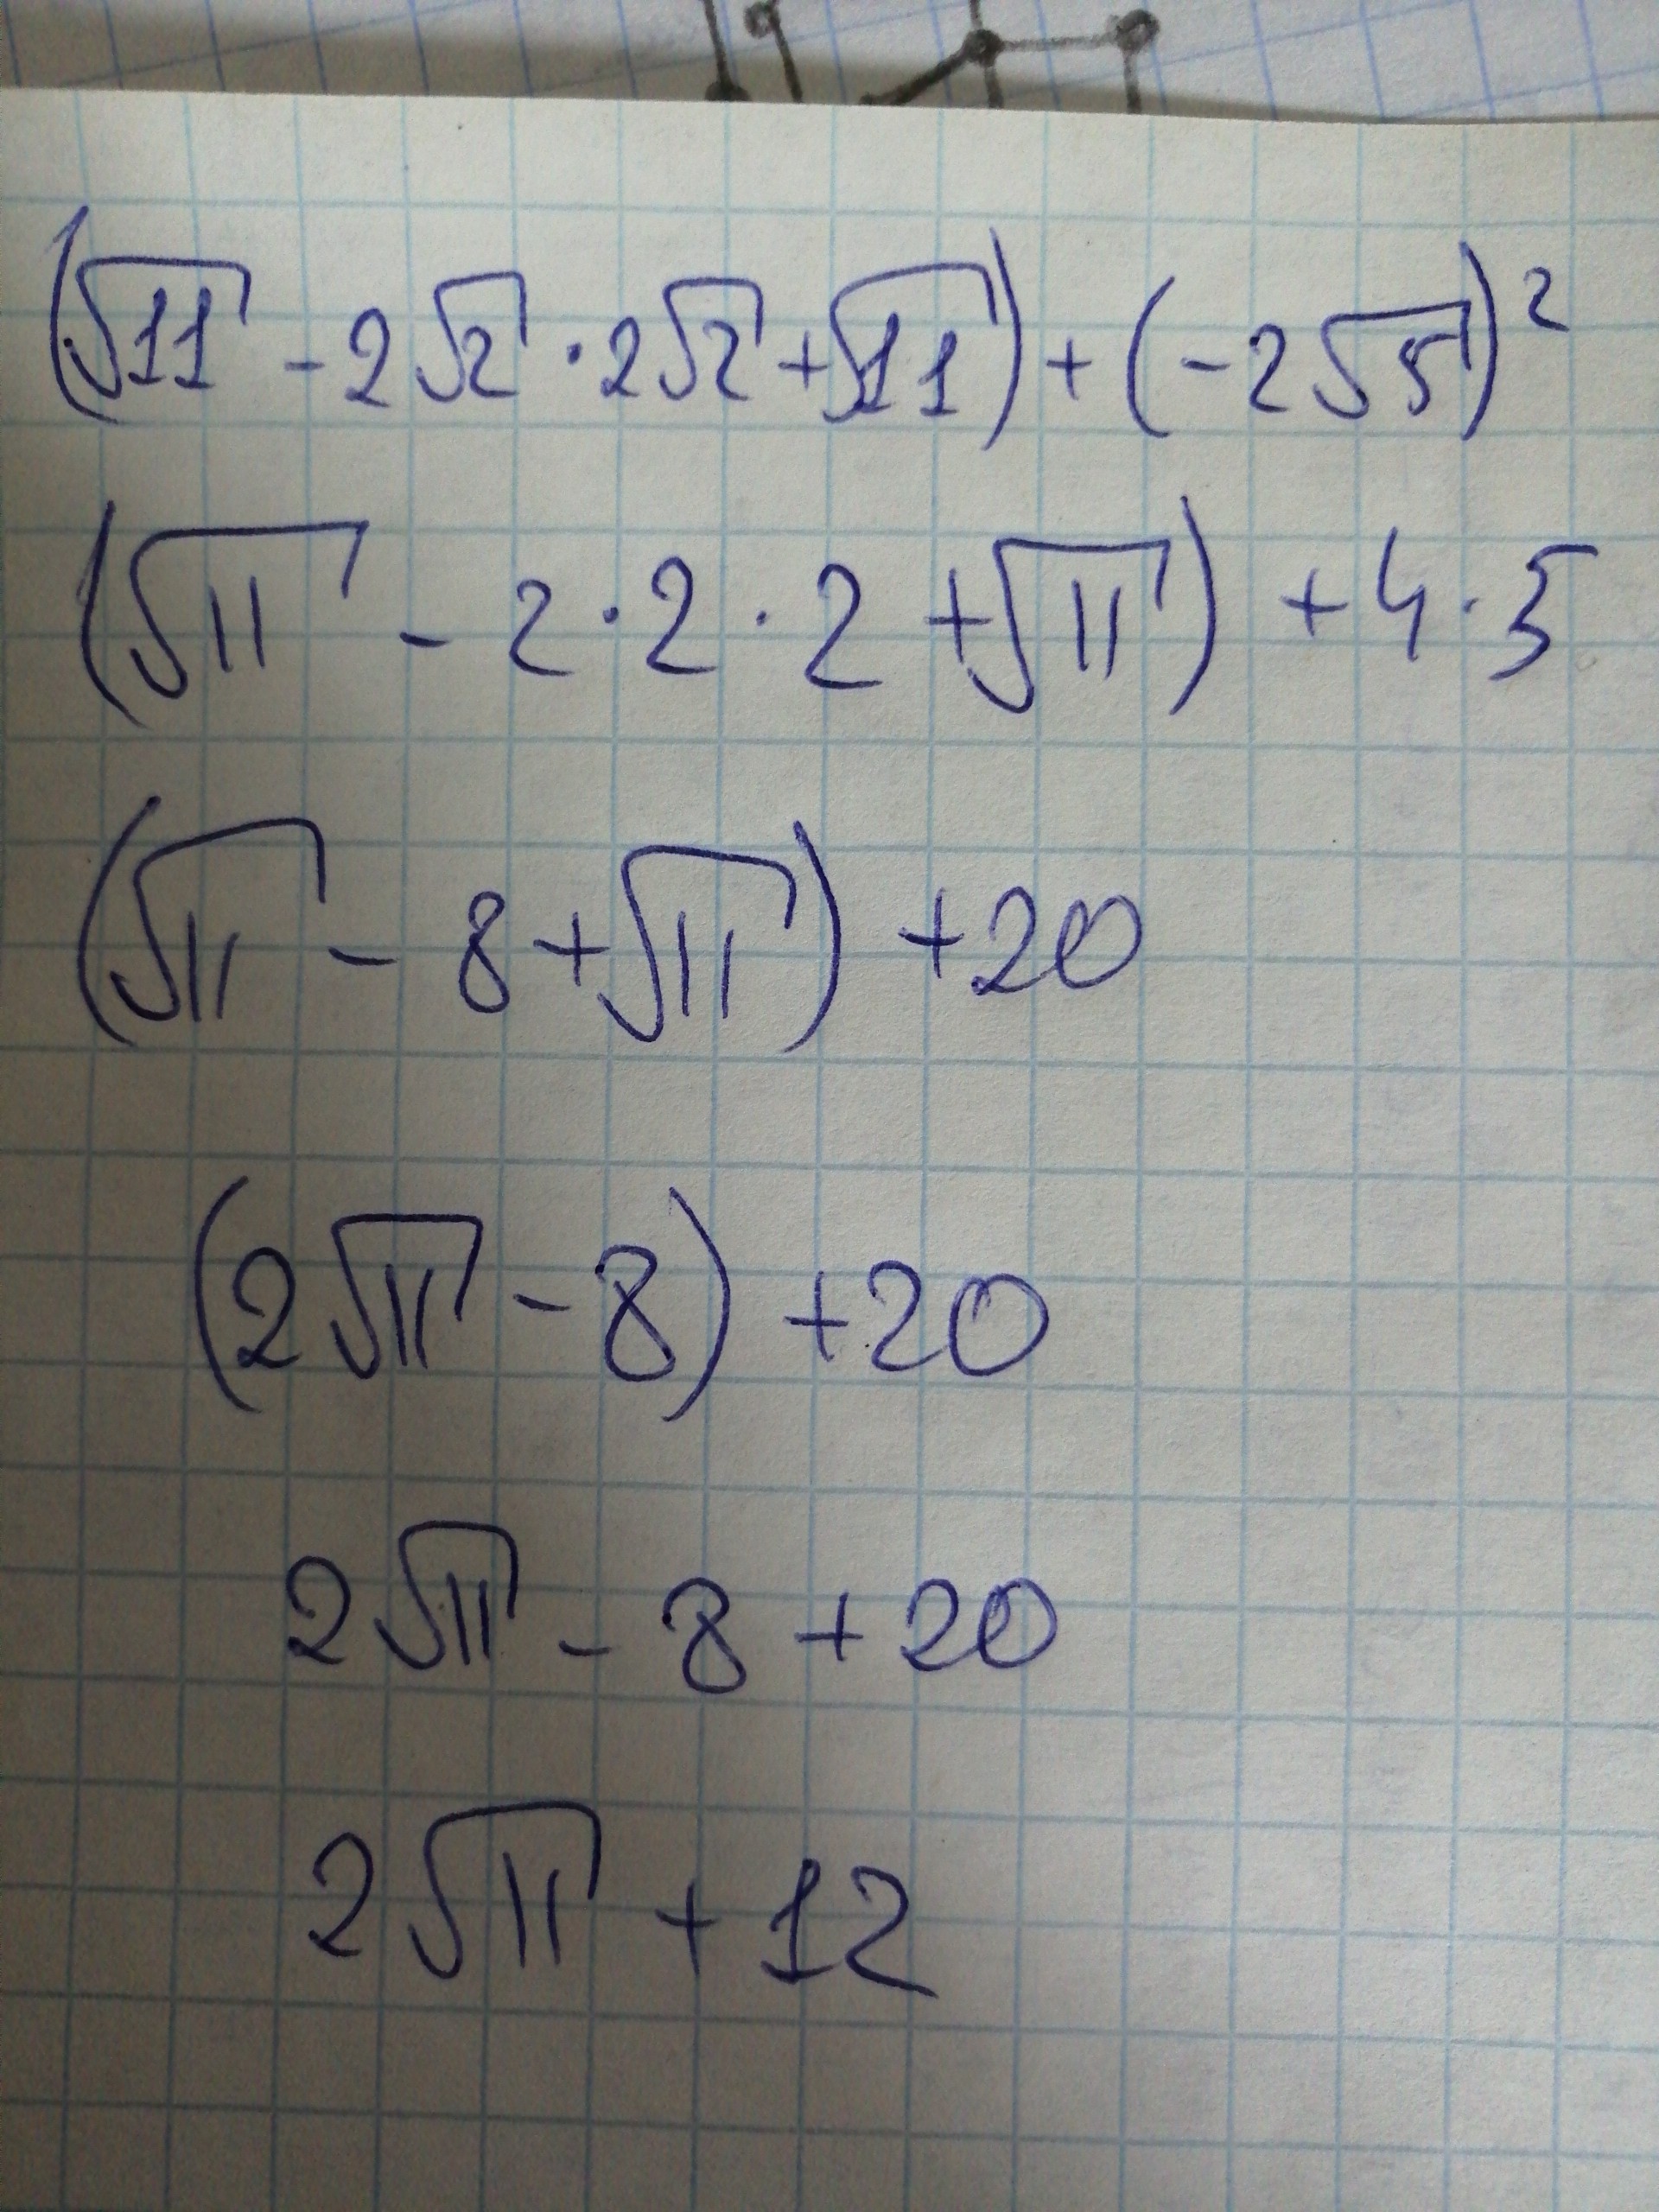 (√11 - 2√2 · 2√2 + √11) + (-2√5)²
(√11 - 2 · 2 · 2 + √11) + 4 · 5
(√11 - 8 + √11) + 20
(2√11 - 8) + 20
2√11 - 8 + 20
2√11 + 12